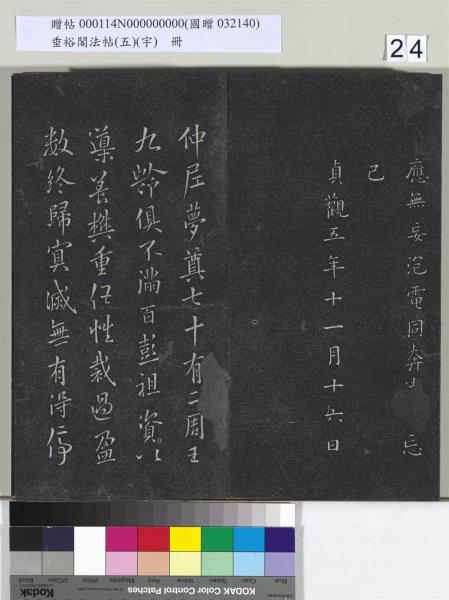 贈帖 000114N000000000(國贈 032140)
垂裕閣法帖(五)(宇)　冊
24
應無妄泡電同奔 忘
己
貞觀五年十一月十六日
仲尼夢奠七十有二周王
九齡俱不滿百彭祖資以
導養樊重任性裁過盈
數終歸冥滅無有得停
Blue Cyan Green Yellow Red Magenta White 3/Color Black
Kodak
KODAK Color Control Patches